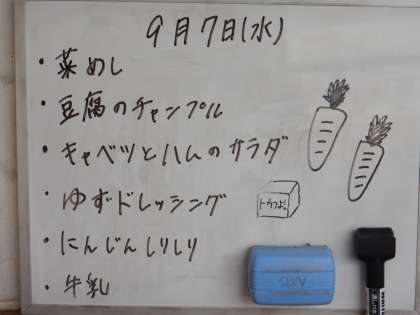 9月7日(水)
・菜めし
・豆腐のチャンプル
・キャベツとハムのサラダ
・ゆずドレッシング
トウフよ!
・にんじんしりしり
・牛乳